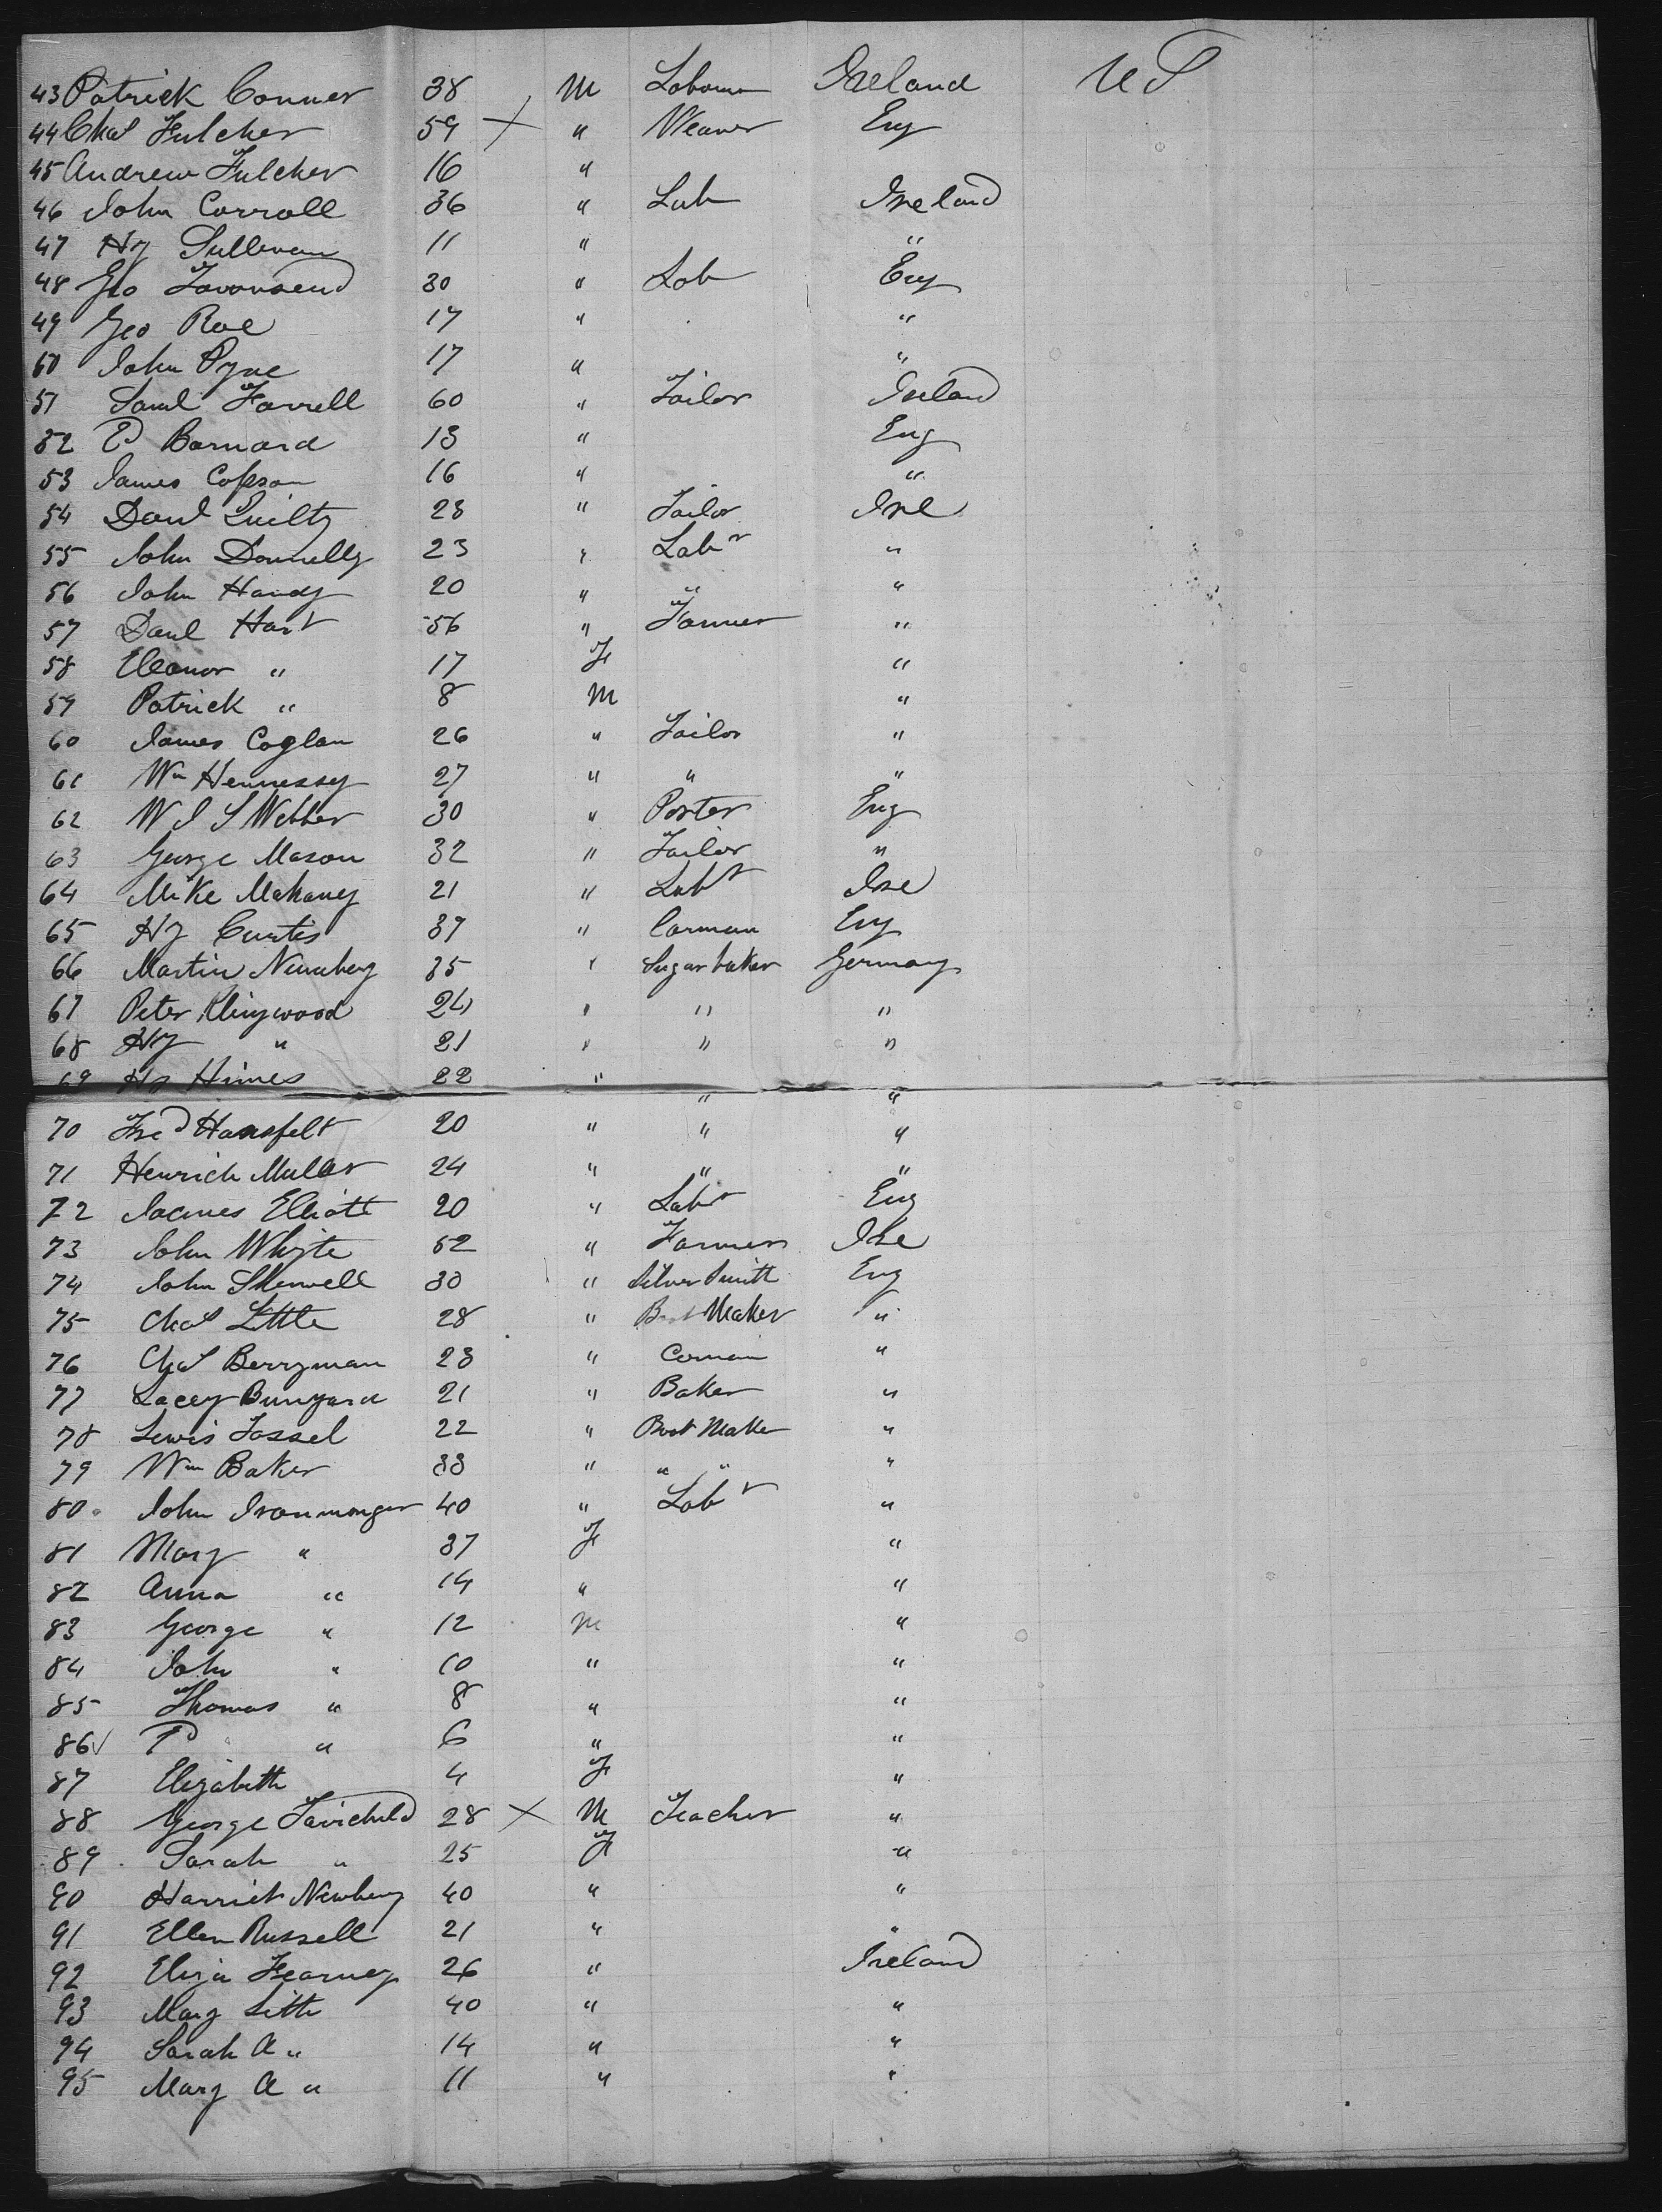 43 Patrick Conner 38 M Laborer Ireland U S
44 Chas Fulcher 59 X " Weaver Eng
45 Andrew Fulcher 16 "
46 John Carroll 36 " Lab Ireland
47 Hy Sullivan 11 " "
48 Geo Townsend 30 " Lab Eng
49 Geo Roe 17 " "
50 John Pyne 17 " "
51 Saml Farrell 60 " Tailor Ireland
52 P Barnard 13 " Eng
53 James Copson 16 " "
54 Danl Quilty 23 " Tailor Ire
55 John Donnelly 23 " Labr "
56 John Handy 20 " " "
57 Danl Hart 56 " Farmer "
58 Eleanor " 17 F "
59 Patrick " 8 M "
60 James Coglan 26 " Tailor "
61 Wm Hennessy 27 " " "
62 W J S Webber 30 " Porter Eng
63 George Mason 32 " Tailor "
64 Mike Mahaney 21 " Labr Ire
65 Hy Curtis 37 " Carman Eng
66 Martin 35 " Sugar baker Germany
67 Peter Klingwood 24 " " "
68 Hy " 21 " " "
69 Hy Himes 22 " " "
70 Fred Hansfelt 20 " " "
71 Henrich Muller 24 " " "
72 James Elliott 20 " Labr Eng
73 John Whyte 52 " Farmer Ire
74 John Sherwell 30 " Silver Smith Eng
75 Chas Little 28 " Boot Maker "
76 Chas Berryman 23 " Carman "
77 Lacey Bunyard 21 " Baker "
78 Lewis Tassel 22 " Boot Maker "
79 Wm Baker 33 " " " "
80 John Ironmonger 40 " Labr "
81 Mary " 37 F "
82 Anna " 14 " "
83 George " 12 M "
84 John " 10 " "
85 Thomas " 8 " "
86 P " 6 " "
87 Elizabeth 4 F "
88 George Fairchild 28 X M Teacher "
89 Sarah " 25 F "
90 Harriet Newberry 40 " "
91 Ellen Russell 21 " "
92 Eliza Kearney 26 " Ireland
93 Mary 40 " "
94 Sarah A " 14 " "
95 Mary A " 11 " "